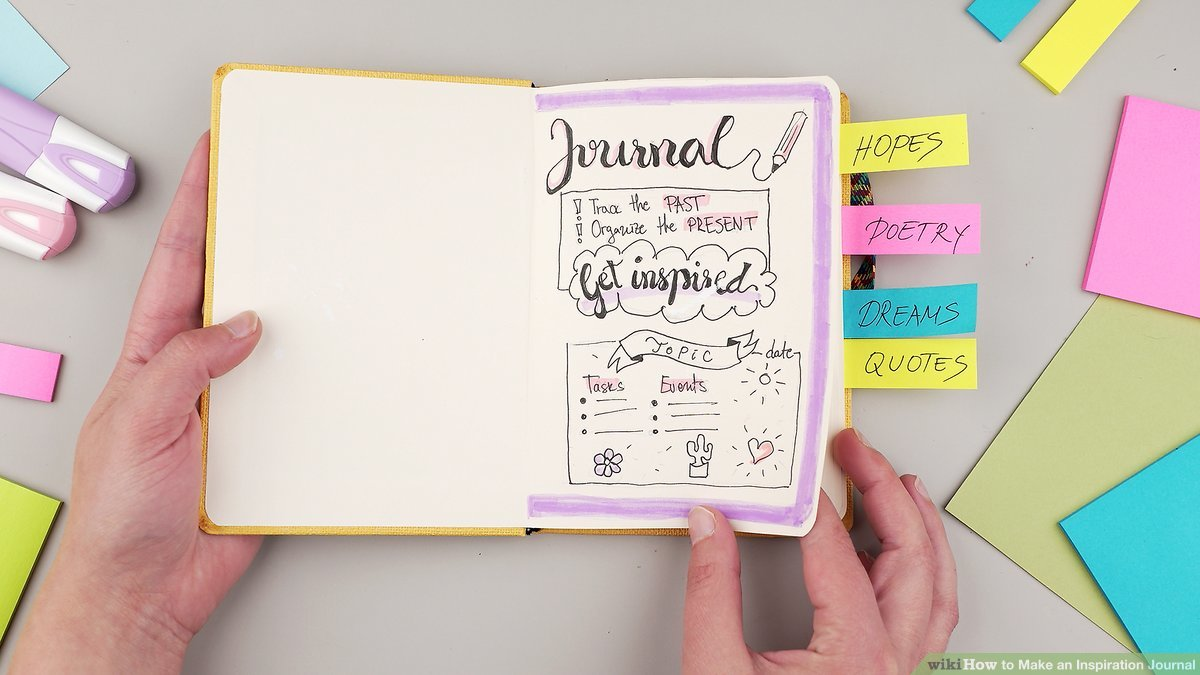 Journal
Trace the PAST
Organize the PRESENT
Get inspired.
TOPIC
date
Tasks
Events
HOPES
POETRY
DREAMS
QUOTES
wikiHow to Make an Inspiration Journal